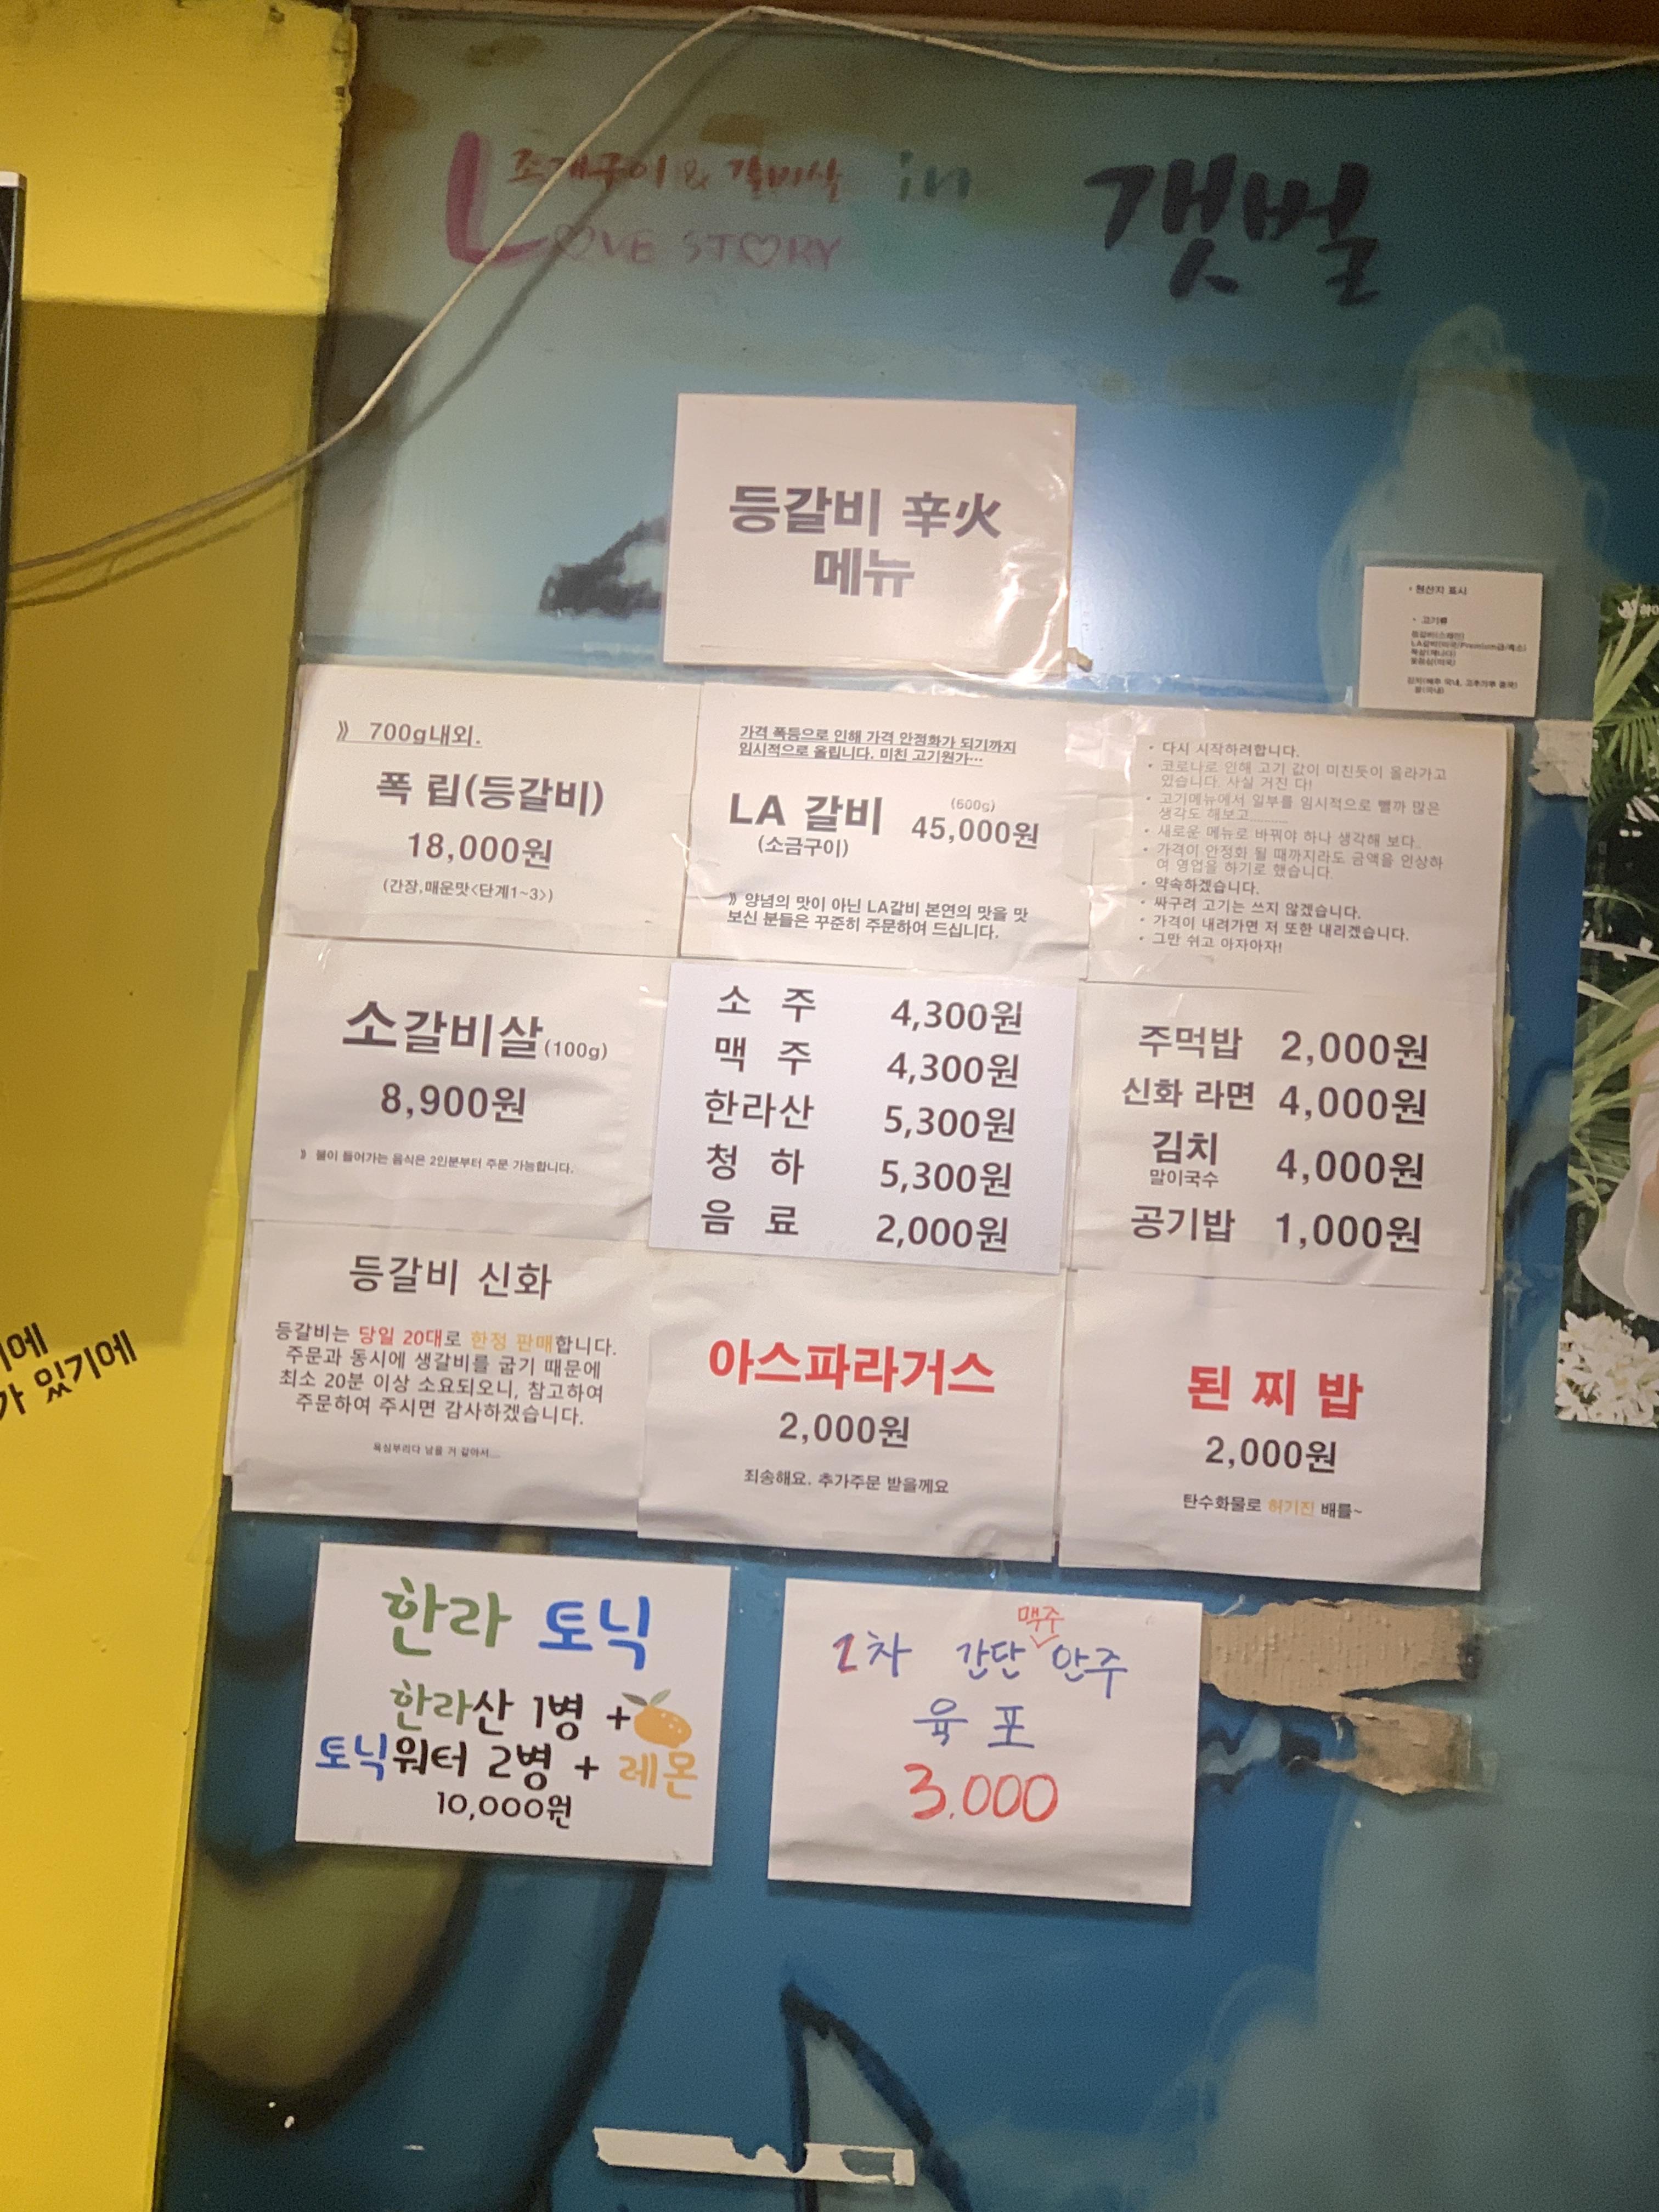 조개구이 & 갈비살 in 갯벌
LOVE STORY
등갈비 辛火
메뉴
• 원산지 표시
• 고기류
등갈비(스페인)
LA갈비(미국/Premium급/특소)
목살(캐나다)
김치(배추 국내, 고추가루 중국)
쌀(국내)
》 700g내외.
폭 립(등갈비)
18,000원
(간장,매운맛<단계1~3>)
가격 폭등으로 인해 가격 안정화가 되기까지
임시적으로 올립니다. 미친 고기원가…
LA 갈비 (600g) 45,000원
(소금구이)
》 양념의 맛이 아닌 LA갈비 본연의 맛을 맛
보신 분들은 꾸준히 주문하여 드십니다.
• 다시 시작하려합니다.
• 코로나로 인해 고기 값이 미친듯이 올라가고
있습니다. 사실 거진 다!
• 고기메뉴에서 일부를 임시적으로 뺄까 많은
생각도 해보고..........
• 새로운 메뉴로 바꿔야 하나 생각해 보다..
• 가격이 안정화 될 때까지라도 금액을 인상하
여 영업을 하기로 했습니다.
• 약속하겠습니다.
• 싸구려 고기는 쓰지 않겠습니다.
• 가격이 내려가면 저 또한 내리겠습니다.
• 그만 쉬고 아자아자!
소갈비살(100g)
8,900원
》 불이 들어가는 음식은 2인분부터 주문 가능합니다.
소 주 4,300원
맥 주 4,300원
한라산 5,300원
청 하 5,300원
음 료 2,000원
주먹밥 2,000원
신화 라면 4,000원
김치 4,000원
말이국수
공기밥 1,000원
등갈비 신화
등갈비는 당일 20대로 한정 판매합니다.
주문과 동시에 생갈비를 굽기 때문에
최소 20분 이상 소요되오니, 참고하여
주문하여 주시면 감사하겠습니다.
욕심부리다 남을 거 같아서....
아스파라거스
2,000원
죄송해요. 추가주문 받을께요
된 찌 밥
2,000원
탄수화물로 허기진 배를~
한라 토닉
한라산 1병 +
토닉워터 2병 + 레몬
10,000원
맥주
2차 간단 안주
육 포
3.000
기에
가 있기에